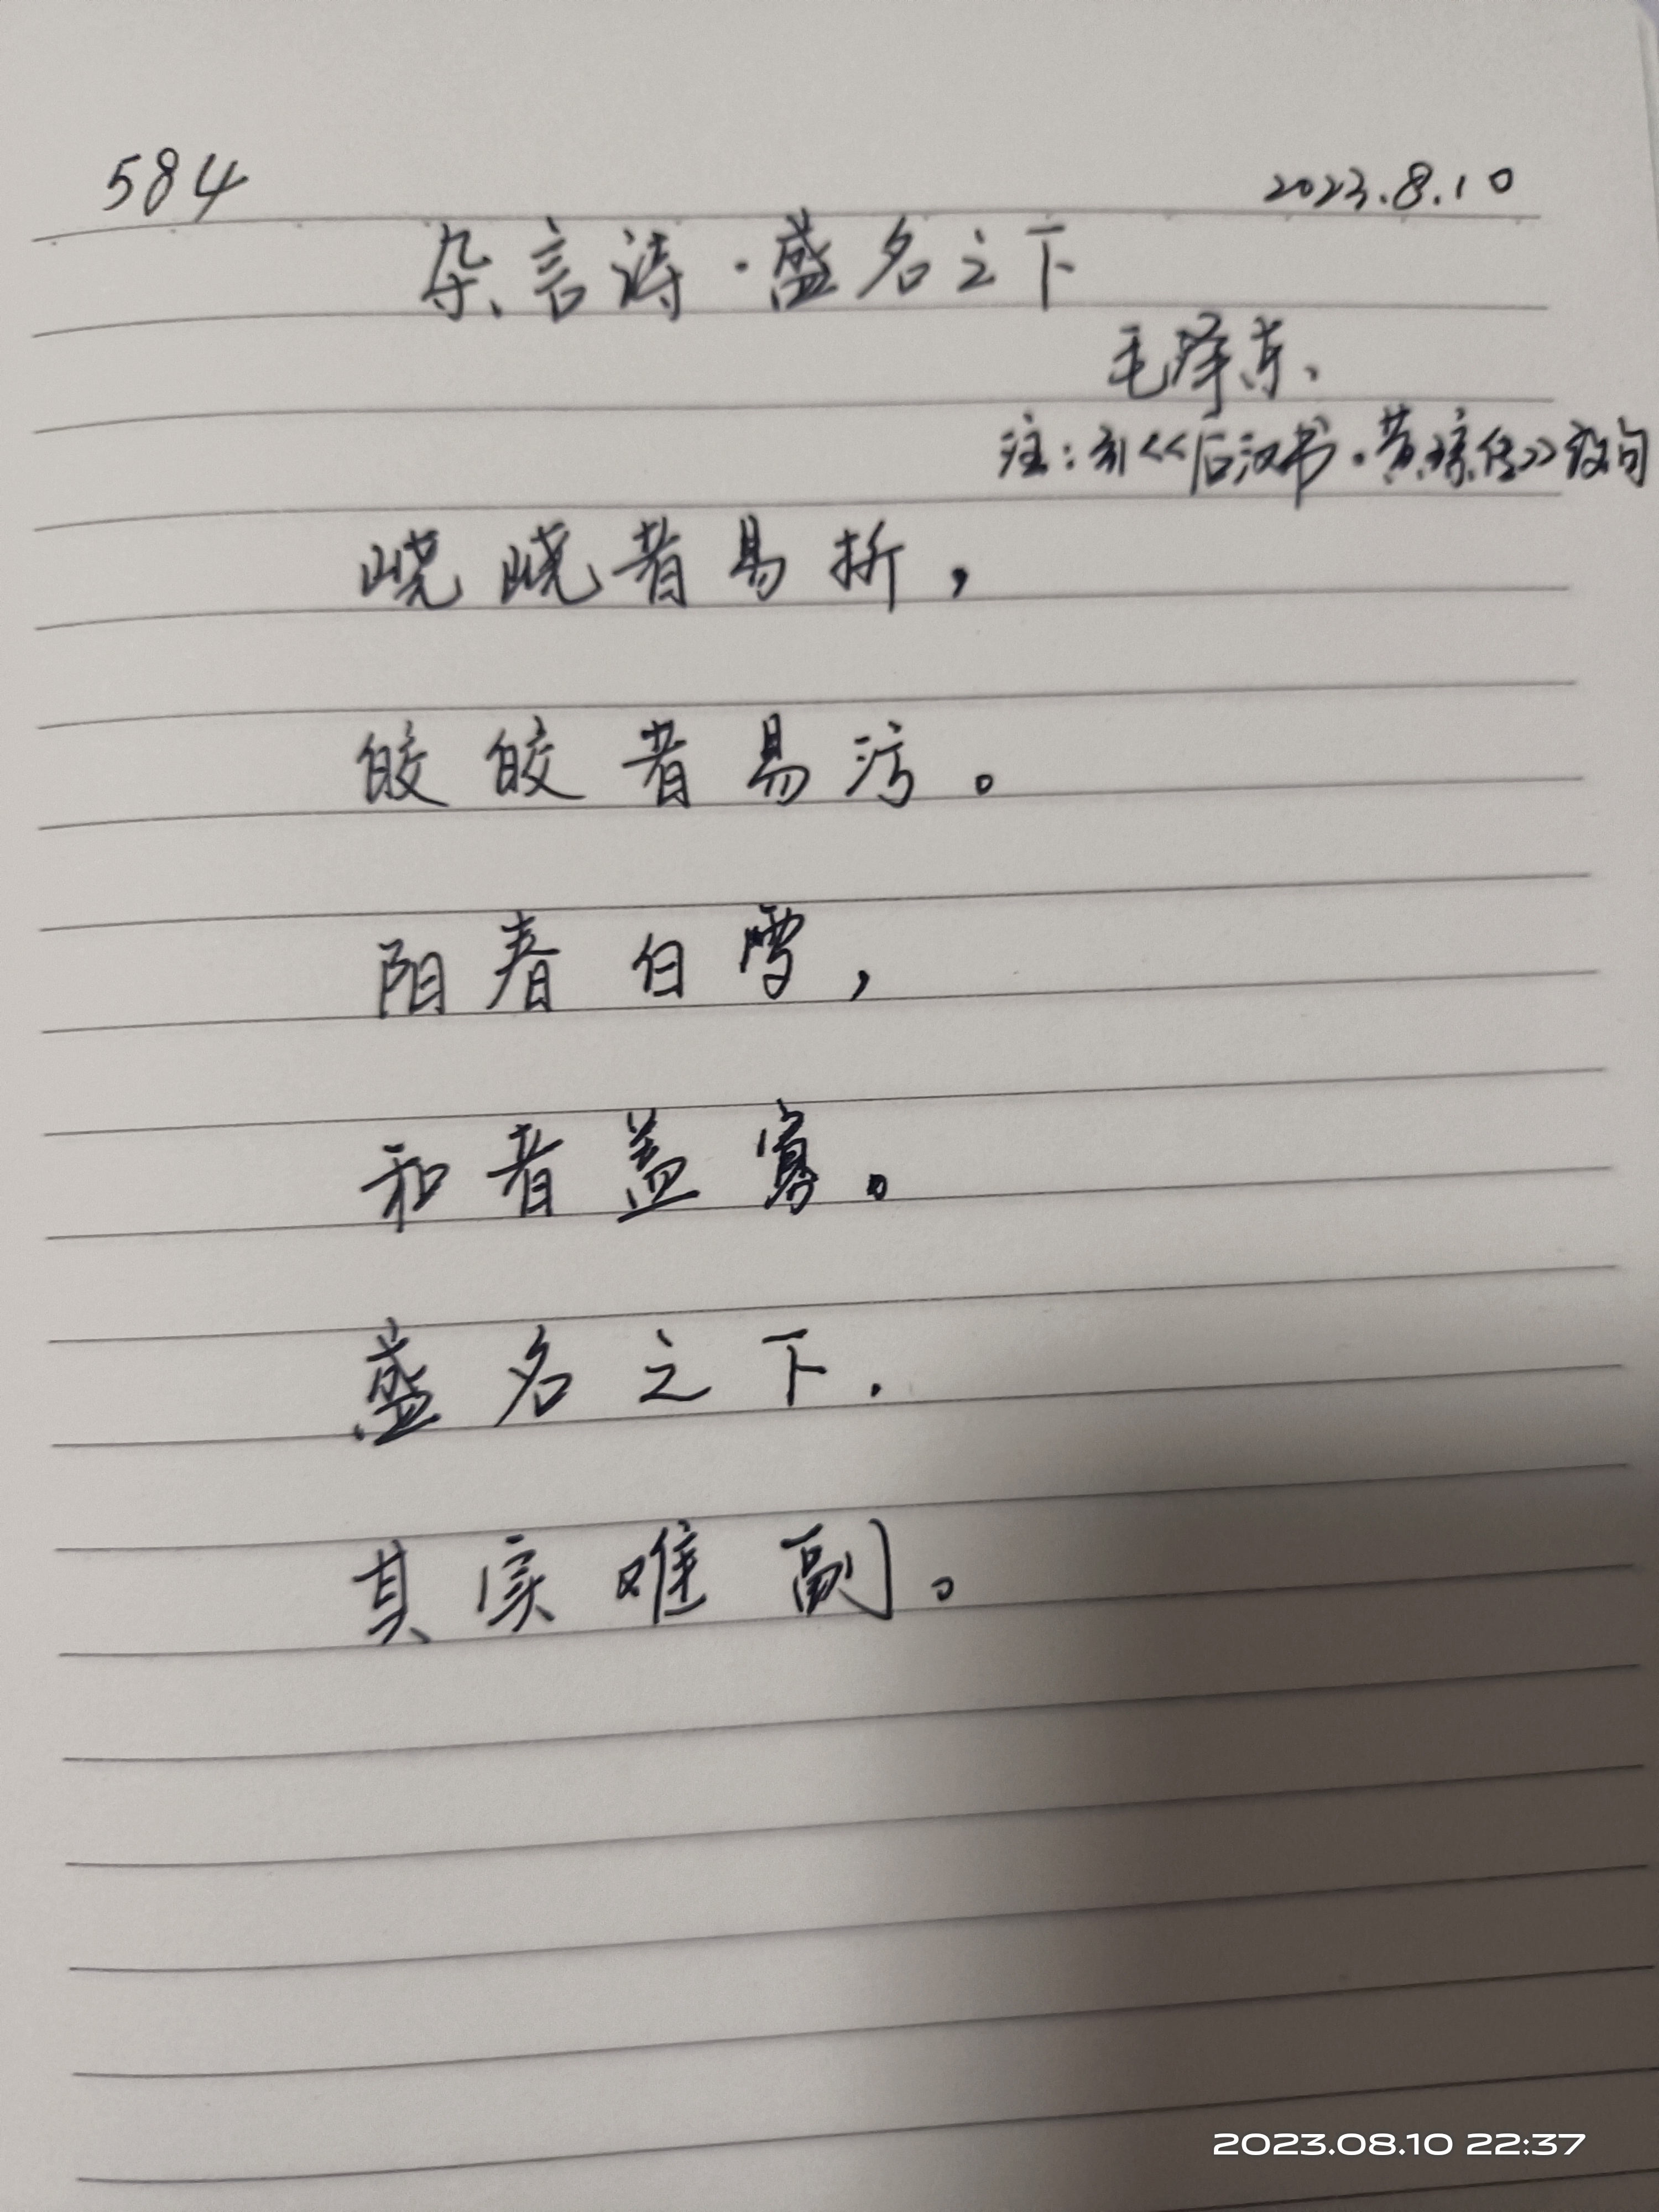 584
2023.8.10
杂言诗·盛名之下
毛泽东
注:引<<后汉书·黄琼传>>改句
峣峣者易折,
皎皎者易污。
阳春白雪,
和者盖寡。
盛名之下.
其实唯副。
2023.08.10 22:37